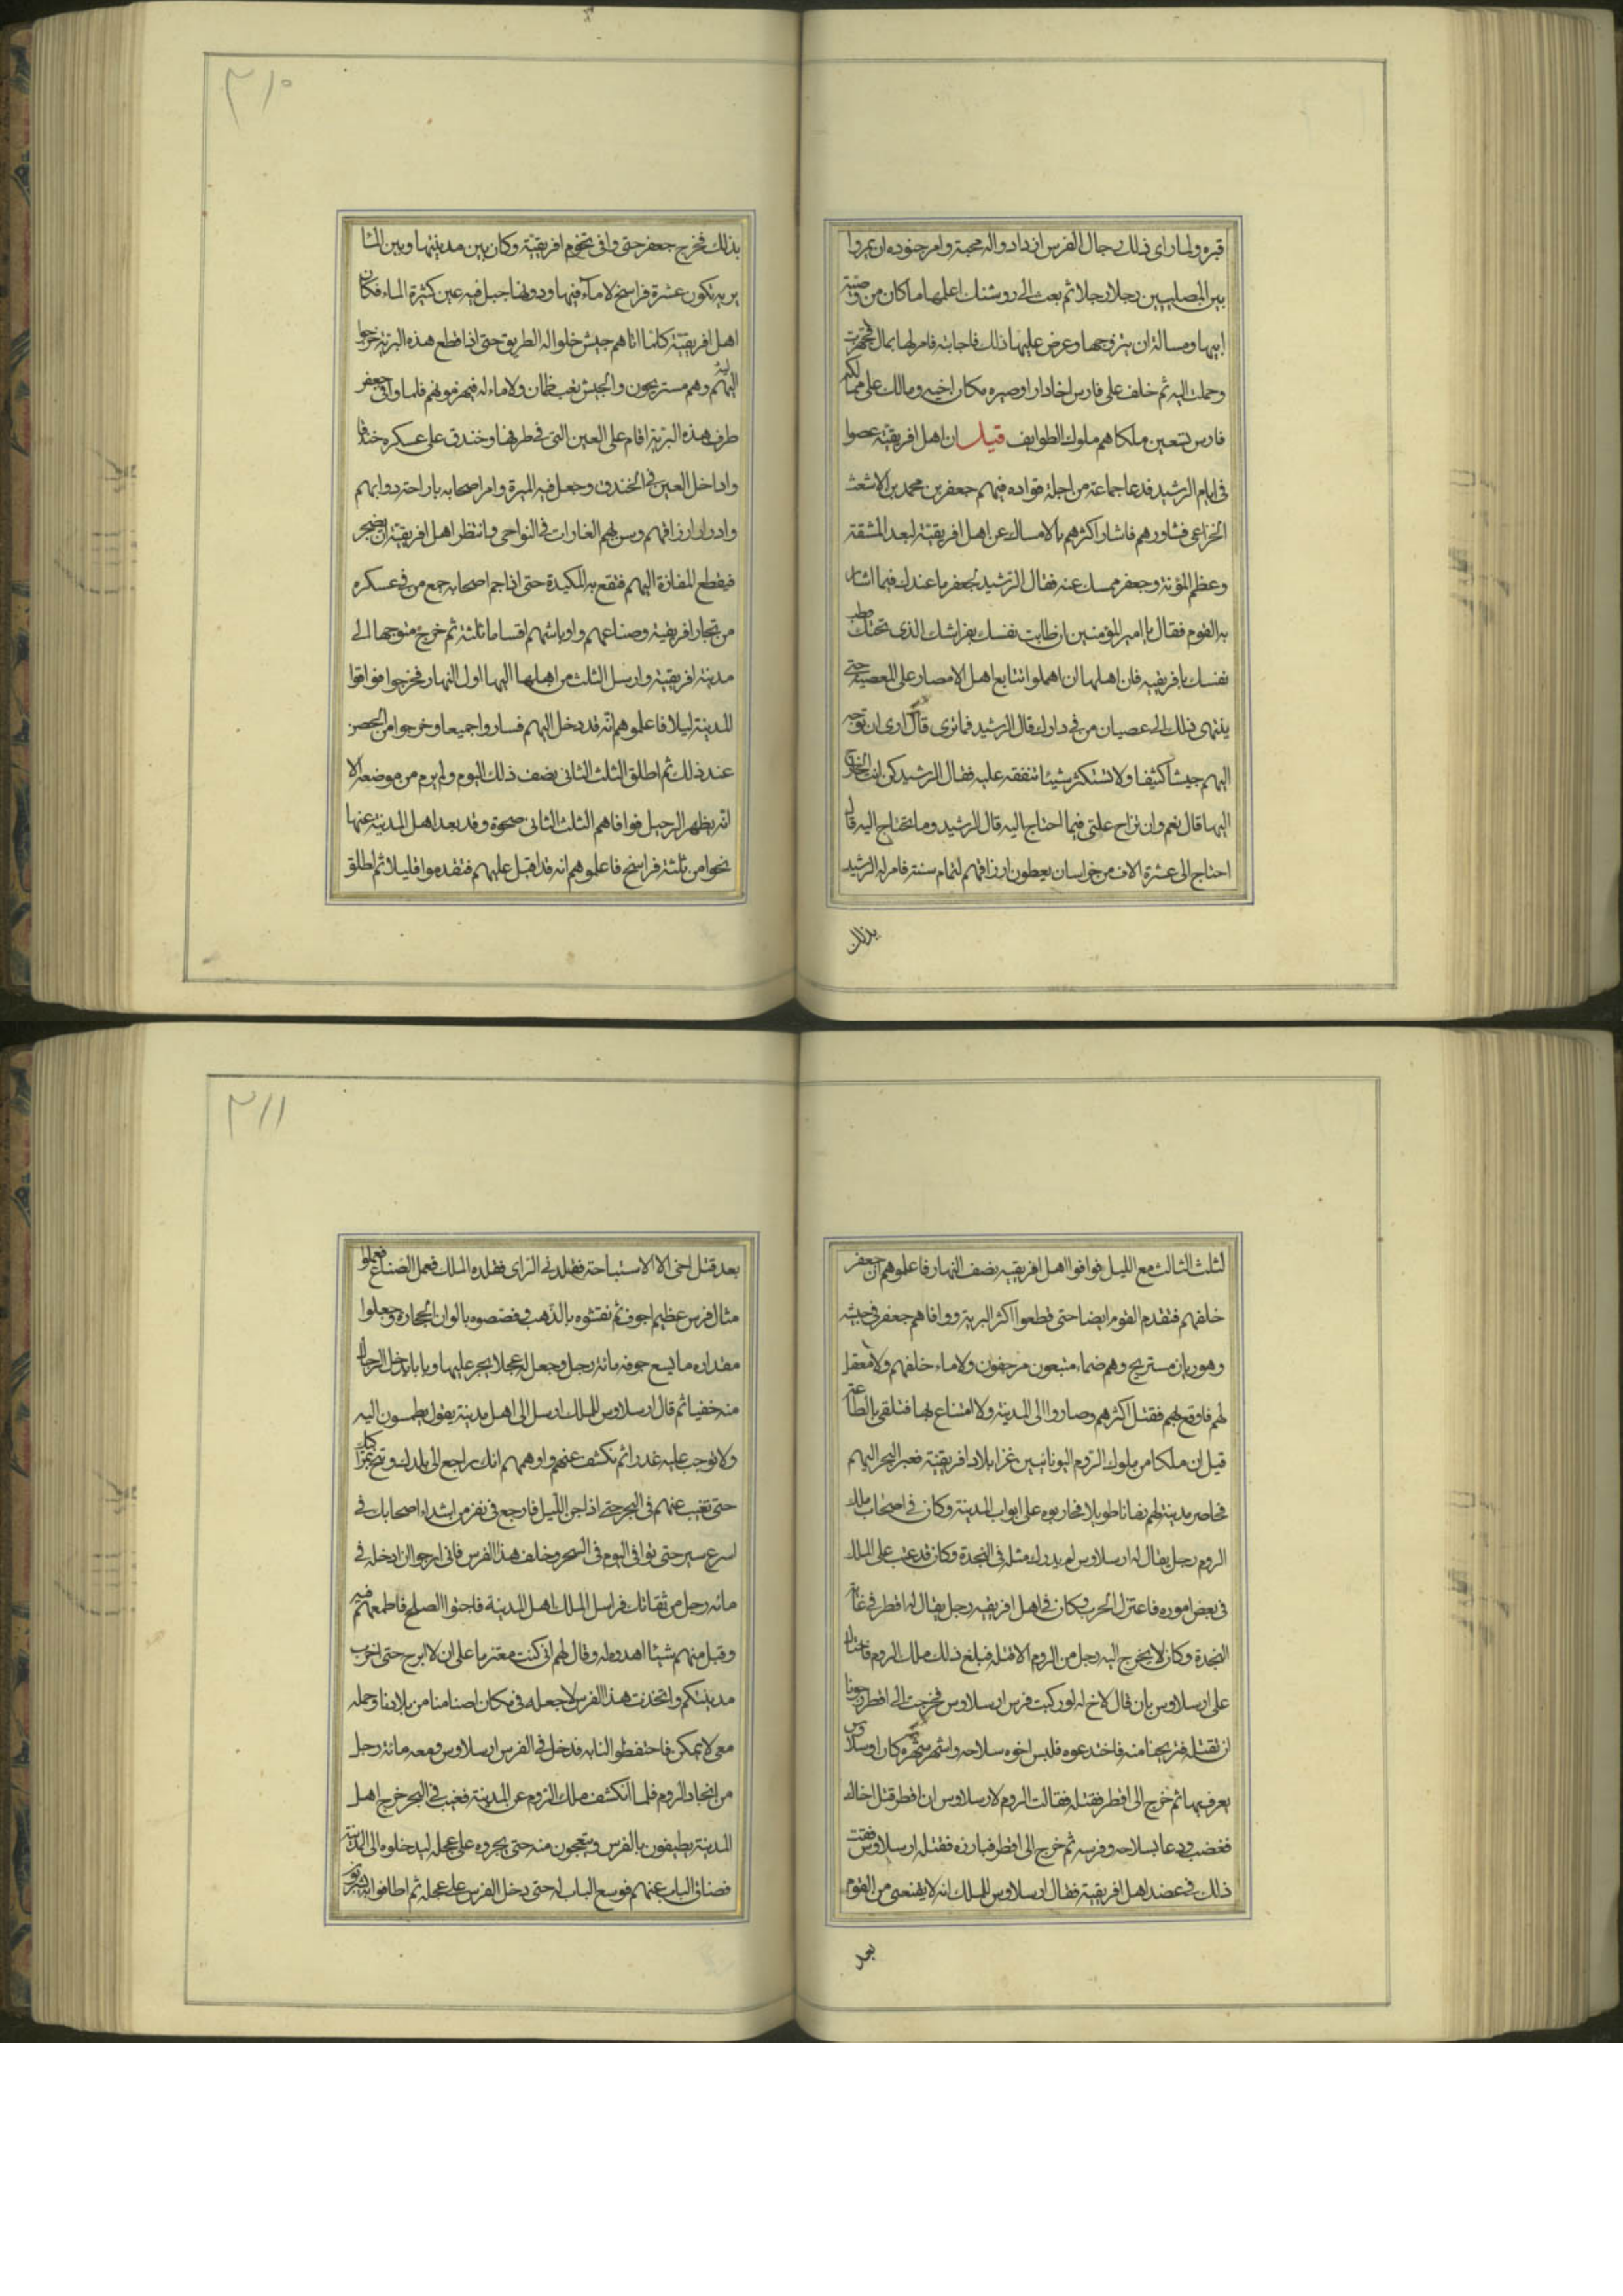 قبره ولما راى ذلك رجال الفرس ازدادوا له محبة وامر جنوده ان يمروا
بين المصلبين رجلا رجلا ثم بعث الى روشنك اعلمها ما كان من وصية
ابيها ومسالته ان يتزوجها وعرض عليها ذلك فاجابته فامر لها بمال فتجهزت
وحملت اليه ثم خلف على فارس اخا دارا وصيره مكان اخيه وملك على ممالكه
فارس تسعين ملكا هم ملوك الطوايف قيل ان اهل افريقية عصوا
فى ايام الرشيد فدعا جماعة من اجلة قواده فيهم جعفر بن محمد بن الاشعث
الخزاعى فشاورهم فاشار اكثرهم بالامساك عن اهل افريقية لبعد المشقة
وعظم المؤنة وجعفر ممسك عنه فقال الرشيد لجعفر ما عندك فيما اشار
به القوم فقال يا امير المؤمنين ان طابت نفسك بفراشك الذى تحتك طب
نفسك بافريقيه فان اهلها ان اهملوا تتابع اهل الامصار على المعصية حتى
ينتهى ذلك الى عصيان من فى دارك قال الرشيد فما ترى قال ارى ان توجه
اليهم جيشا كثيفا ولا تستكثر شيئا تنفقه عليه فقال الرشيد كن انت الخارج
اليها قال نعم وان تزاح علتى فيما احتاج اليه قال الرشيد وما تحتاج اليه قال
احتاج الى عشرة الاف من خراسان يعطون ارزاقهم لتمام سنة فامر له الرشيد
بذلك
٣١٠
بذلك فخرج جعفر حتى وافى تخوم افريقية وكان بين مدينتها وبين الشا
برية تكون عشرة فراسخ لا ماء فيها ودونها جبل فيه عين كثيرة الماء فكان
اهل افريقية كلما اتاهم جيش خلوا له الطريق حتى اذا قطع هذه البرية خرجوا
اليهم وهم مستريحون والجيش تعب ظمان ولا ماء له فيهزمونهم فلما وافى جعفر
طرف هذه البرية اقام على العين التى فى طرفها وخندق على عسكره خندقا
وادخل العين فى الخندق وجعل فيه الميرة وامر اصحابه باراحة دوابهم
وادرار ارزاقهم وسن لهم الغارات فى النواحى وانتظر اهل افريقية ان يضجر
فيقطع المفازة اليهم فتقع به المكيدة حتى اذا جم اصحابه جمع من فى عسكره
من تجار افريقية وصناعهم واوباشهم اقساما ثلثة ثم خرج متوجها الى
مدينة افريقية وارسل الثلث من اهلها اليها اول النهار فخرجوا فوافوا
المدينة ليلا فاعلموهم انه قد دخل اليهم فساروا جميعا وخرجوا من الحصن
عند ذلك ثم اطلق الثلث الثانى نصف ذلك اليوم ولم يرم من موضعه الا
انه يظهر الرحيل فوافاهم الثلث الثانى ضحوة وقد بعد اهل المدينة عنها
نحوا من ثلثة فراسخ فاعلموهم انه قد اقبل عليهم فتقدموا قليلا ثم اطلق
لثلث الثالث مع الليل فوافوا اهل افريقيه نصف النهار فاعلموهم ان جعفر
خلفهم فتقدم القوم ايضا حتى قطعوا اكثر البرية ووافاهم جعفر فى جيشه
وهو ريان مستريح وهم ضماء متبعون مرجفون ولا ماء خلفهم ولا معقل
لهم فاوقع بهم فقتل اكثرهم وصاروا الى المدينة ولا امتناع بها فتلقى بالطاعة
قيل ان ملكا من ملوك الروم اليونانيين غزا بلاد افريقية فعبر البحر اليهم
فحاصر مدينة لهم زمانا طويلا فحاربوه على ابواب المدينة وكان فى اصحاب ملك
الروم رجل يقال له ارسلاوس لم يدرك مثله فى النجدة وكان قد عتب على الملك
فى بعض اموره فاعتزل الحرب وكان فى اهل افريقيه رجل يقال له افطر فى غاية
النجدة وكان لا يخرج اليه رجل من الروم الا قتله فبلغ ذلك ملك الروم فاحتال
على ارسلاوس بان قال لاخ له لو ركبت فرس ارسلاوس فخرجت الى افطر رجونا
ان تقتله فتريحنا منه فاخدعوه فلبس اخوه سلاحه واشهر شهرة كان ارسلاوس
يعرف بها ثم خرج الى افطر فقتله فقالت الروم لارسلاوس ان افطر قتل اخاك
فغضب ودعا بسلاحه وفرسه ثم خرج الى افطر فبارزه فقتله ارسلاوس ففت
ذلك فى عضد اهل افريقية فقال ارسلاوس للملك انه لا يقنعنى من القوم
بعد
٣١١
بعد قتل اخى الا الاستباحة فقلدنى الراى فقلده الملك فعمل الصناع فعملوا
مثال فرس عظيم اجوف ثم نقشوه بالذهب وفصصوه بالوان الحجارة وجعلوا
مقداره ما يسع جوفه مائة رجل وجعل له عجلا يجر عليها وبابا يدخل الرجال
منه خفيا ثم قال ارسلاوس للملك ارسل الى اهل مدينة يقول يطمسون اليه
ولا توجب عليه غدرا ثم نكشف عنهم واوهمهم انك راجع الى بلدك
حتى تغيب عنهم فى البحر حتى اذا جن الليل فارجع فى نفر من اشداء اصحابك فى
اسرع سير حتى توافى اليوم فى السحر وخلف هذا الفرس فانى ارجو ان ادخله فى
مائة رجل من ثقاتك فراسل الملك اهل المدينة فاجنوا الصلح فاطمعهم فيه
وقبل منهم شيئا اهدوه له وقال لهم انى كنت معتزما على ان لا ابرح حتى اخرب
مدينتكم واتخذت هذا الفرس لاجعله فى مكان اصنامنا من بلادنا وحمله
معى لا يمكن فاحتفظوا لنا به فدخل فى الفرس ارسلاوس ومعه مائة رجل
من انجاد الروم فلما انكشف ملك الروم عن المدينة فغيب فى البحر خرج اهل
المدينة يطيفون بالفرس ويتعجبون منه حتى يجروه على عجل ليدخلوه الى المدينة
فضاق الباب عنهم فوسع الباب له حتى دخل الفرس على عجله ثم اطافوا به يشربون